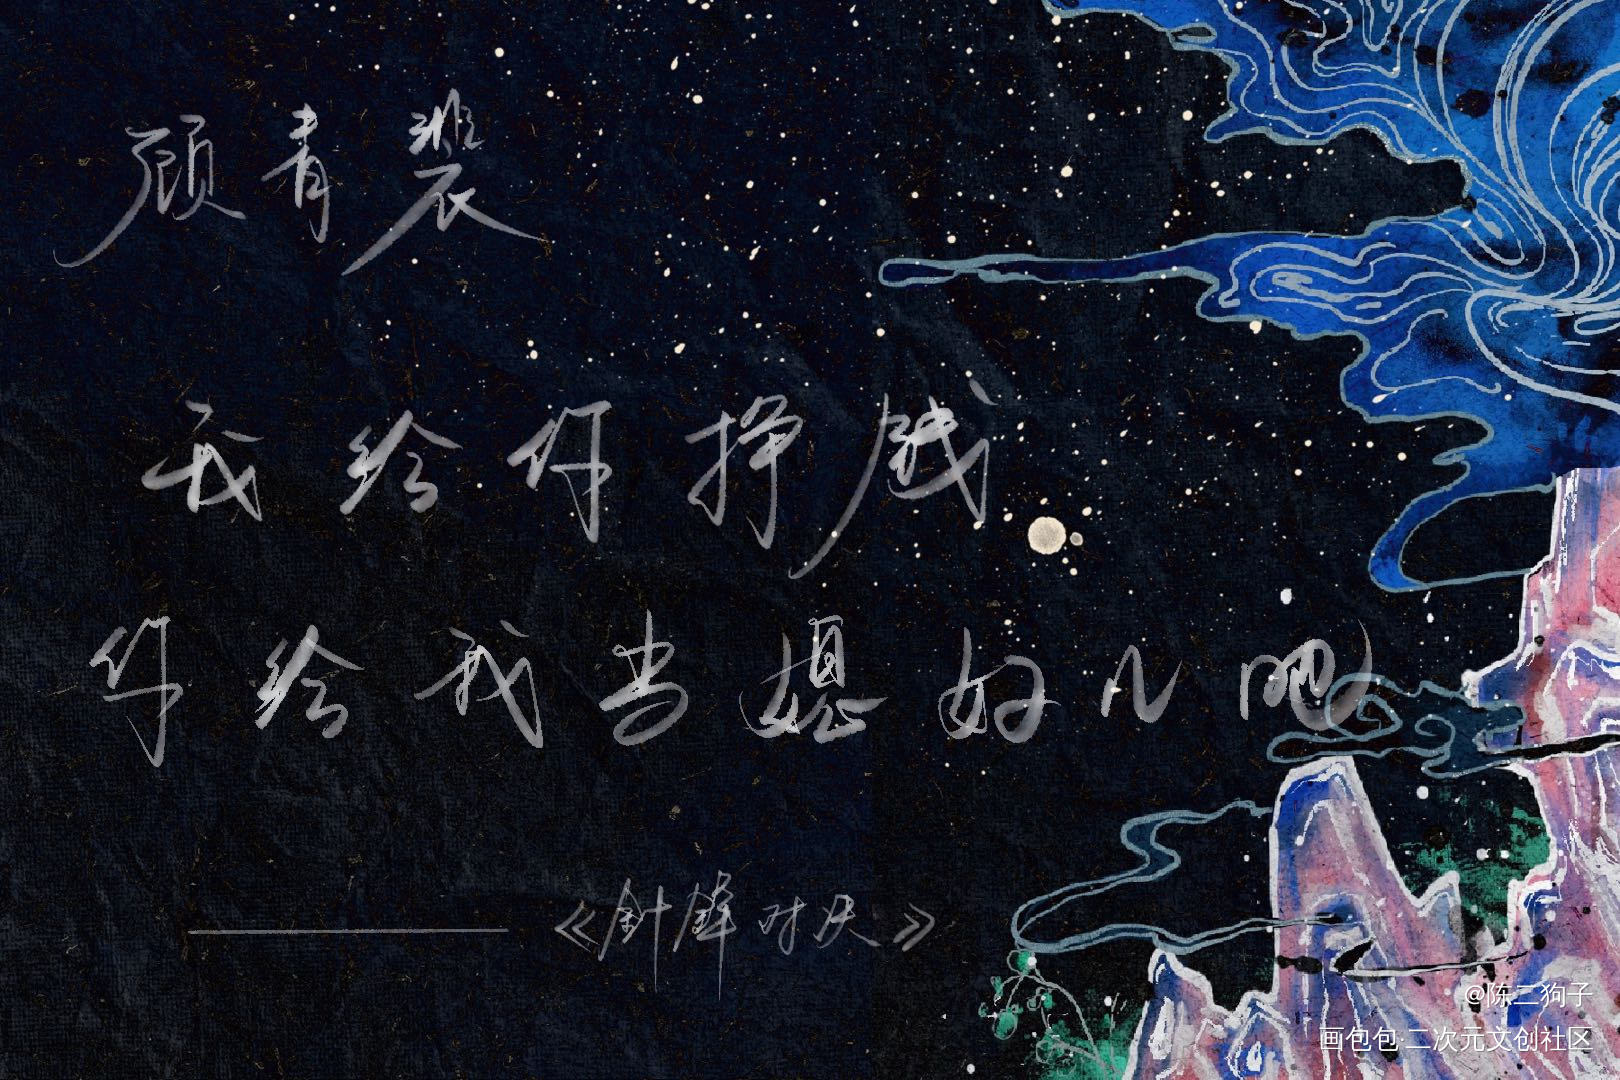 顾青裴
我给你挣钱
你给我当媳妇儿吧
——《针锋对决》
@陈二狗子
画包包·二次元文创社区